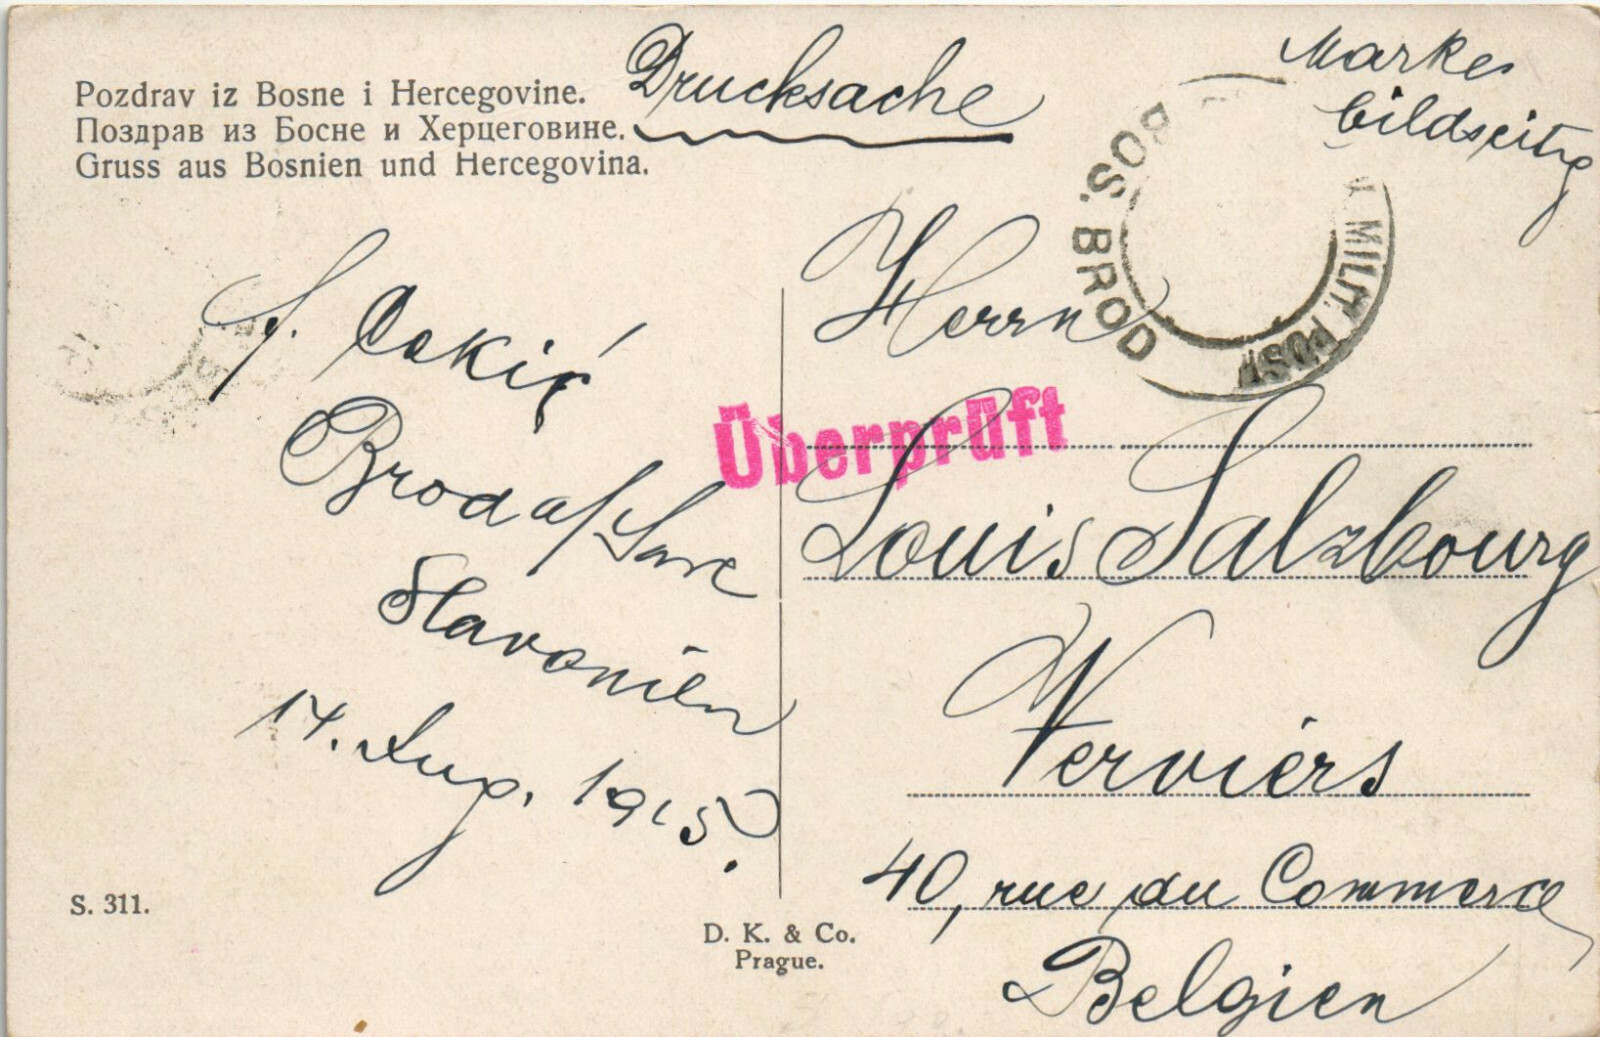 Pozdrav iz Bosne i Hercegovine.
Поздрав из Босне и Херцеговине.
Gruss aus Bosnien und Hercegovina.
Drucksache
Marke
bildseitig
BOS. BROD
MILIT. POST
Herrn
Überprüft
Louis Salzbourg
Verviers
40, rue du Commerce
Belgien
Brod a/Save
Slavonien
14. Aug. 1915.
S. 311.
D. K. & Co.
Prague.